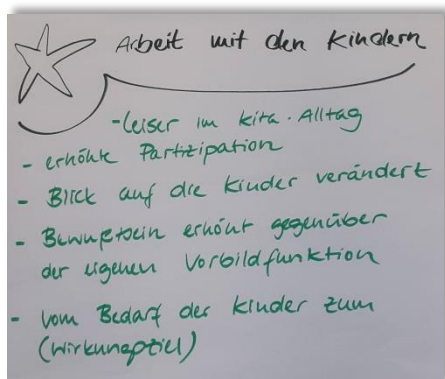 Arbeit mit den Kindern
- leiser im Kita-Alltag
- erhöhte Partizipation
- Blick auf die Kinder verändert
- Bewußtsein erhöht gegenüber
der eigenen Vorbildfunktion
- vom Bedarf der Kinder zum
(Wirkungsziel)